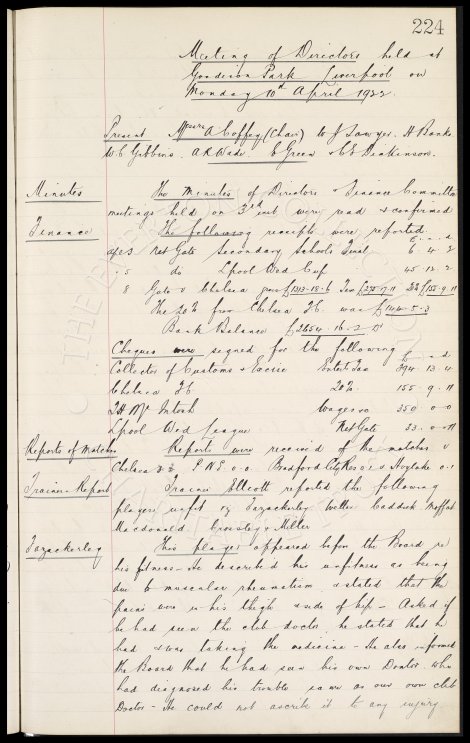 224
Meeting of Directors held at
Goodison Park Liverpool on
Monday 10th April 1922.
Present Messrs A Coffey (Chair) W J Sawyer. H Banks.
W C Gibbins. A R Wade. E Green & C E Dickinson.
Minutes The minutes of Directors & Finance Committee
meetings held on 3rd inst were read & confirmed
Finance The following receipts were reported.
£ s d
Apl 3 Net Gate Secondary Schools Final 6. 4. 3
" 5 do Lpool Wed Cup 45. 12. 2
8 Gate v Chelsea gross £1313-18-6 Tax
The 20% from Chelsea FC. was £144-5-3
Bank Balance £2654-16-2
Cheques were signed for the following £ s d
Collector of Customs & Excise Entert Tax 394. 13. 4
Chelsea FC 20% 155. 9. 11
T H McIntosh Wages &c 350. 0. 0
Lpool Wed League Net Gate 33. 0. 11
Reports of Matches Reports were received of the matches v
Chelsea P.N.E. 0.0 Bradford City Res & Hoylake
Trainers Report Trainer Ellcott reported the following
players unfit viz Fazackerley Weller Caddick Moffat
Macdonald Grimsley & Miller
Fazackerley This player appeared before the Board re
his fitness - He described his unfitness as being
due to muscular rheumatism & stated that the
pains were in his thigh & side of hip - Asked if
he had seen the club doctor he stated that he
had & was taking the medicine - He also informed
the Board that he had seen his own Doctor who
had diagnosed his trouble same as our own club
Doctor - He could not ascribe it to any injury